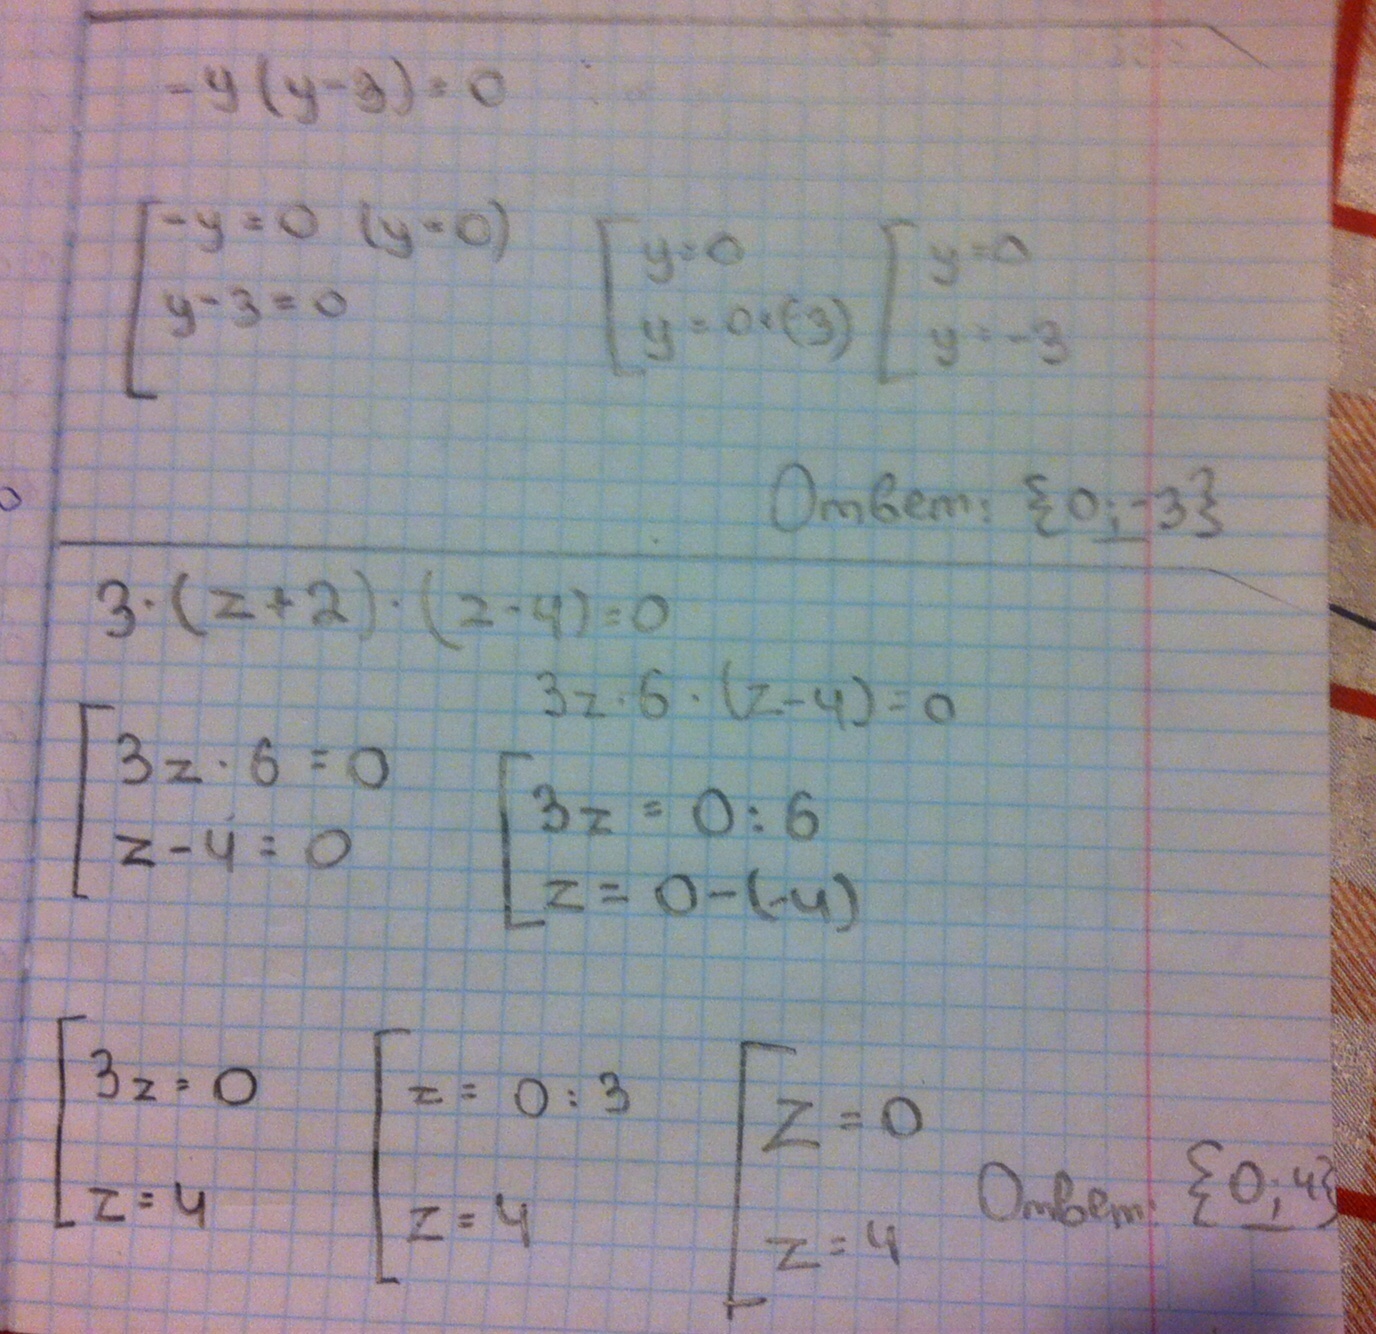 -y(y-3)=0
-y=0 (y=0)
y-3=0
y=0
y=0+(-3)
y=0
y=-3
Ответ: {0;-3}
3·(z+2)·(z-4)=0
3z·6·(z-4)=0
3z·6=0
z-4=0
3z=0:6
z=0-(-4)
3z=0
z=4
z=0:3
z=4
z=0
z=4
Ответ: {0;4}